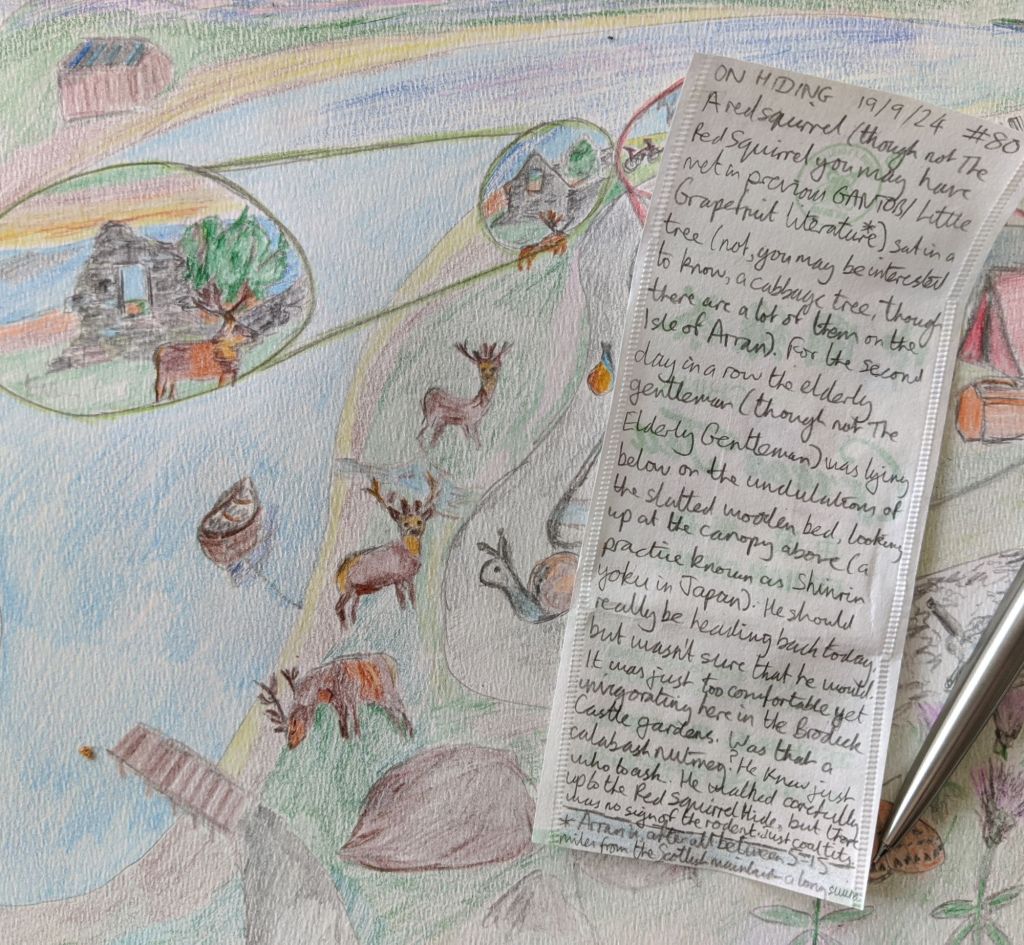 ON HIDING 19/9/24 #80
A red squirrel (though not The
Red Squirrel you may have
met in previous GANTOB/ Little
Grapefruit literature*) sat in a
tree (not, you may be interested
to know, a cabbage tree, though
there are a lot of them on the
Isle of Arran). For the second
day in a row the elderly
gentleman (though not The
Elderly Gentleman) was lying
below on the undulations of
the slatted wooden bed, looking
up at the canopy above (a
practice known as Shinrin
yoku in Japan). He should
really be heading back today,
but wasn't sure that he would.
It was just too comfortable yet
invigorating here in the Brodick
Castle gardens. Was that a
calabash nutmeg? He knew just
who to ask. He walked carefully
up to the Red Squirrel Hide, but
was no sign of the rodent. Just coal tits.
* Arran is after all between 5-15
miles from the Scottish mainland - a long swim